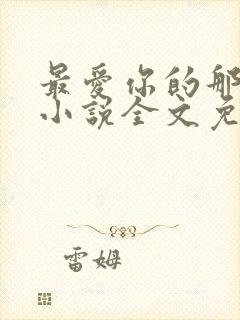 最愛你的那
小說全文免
雷姆